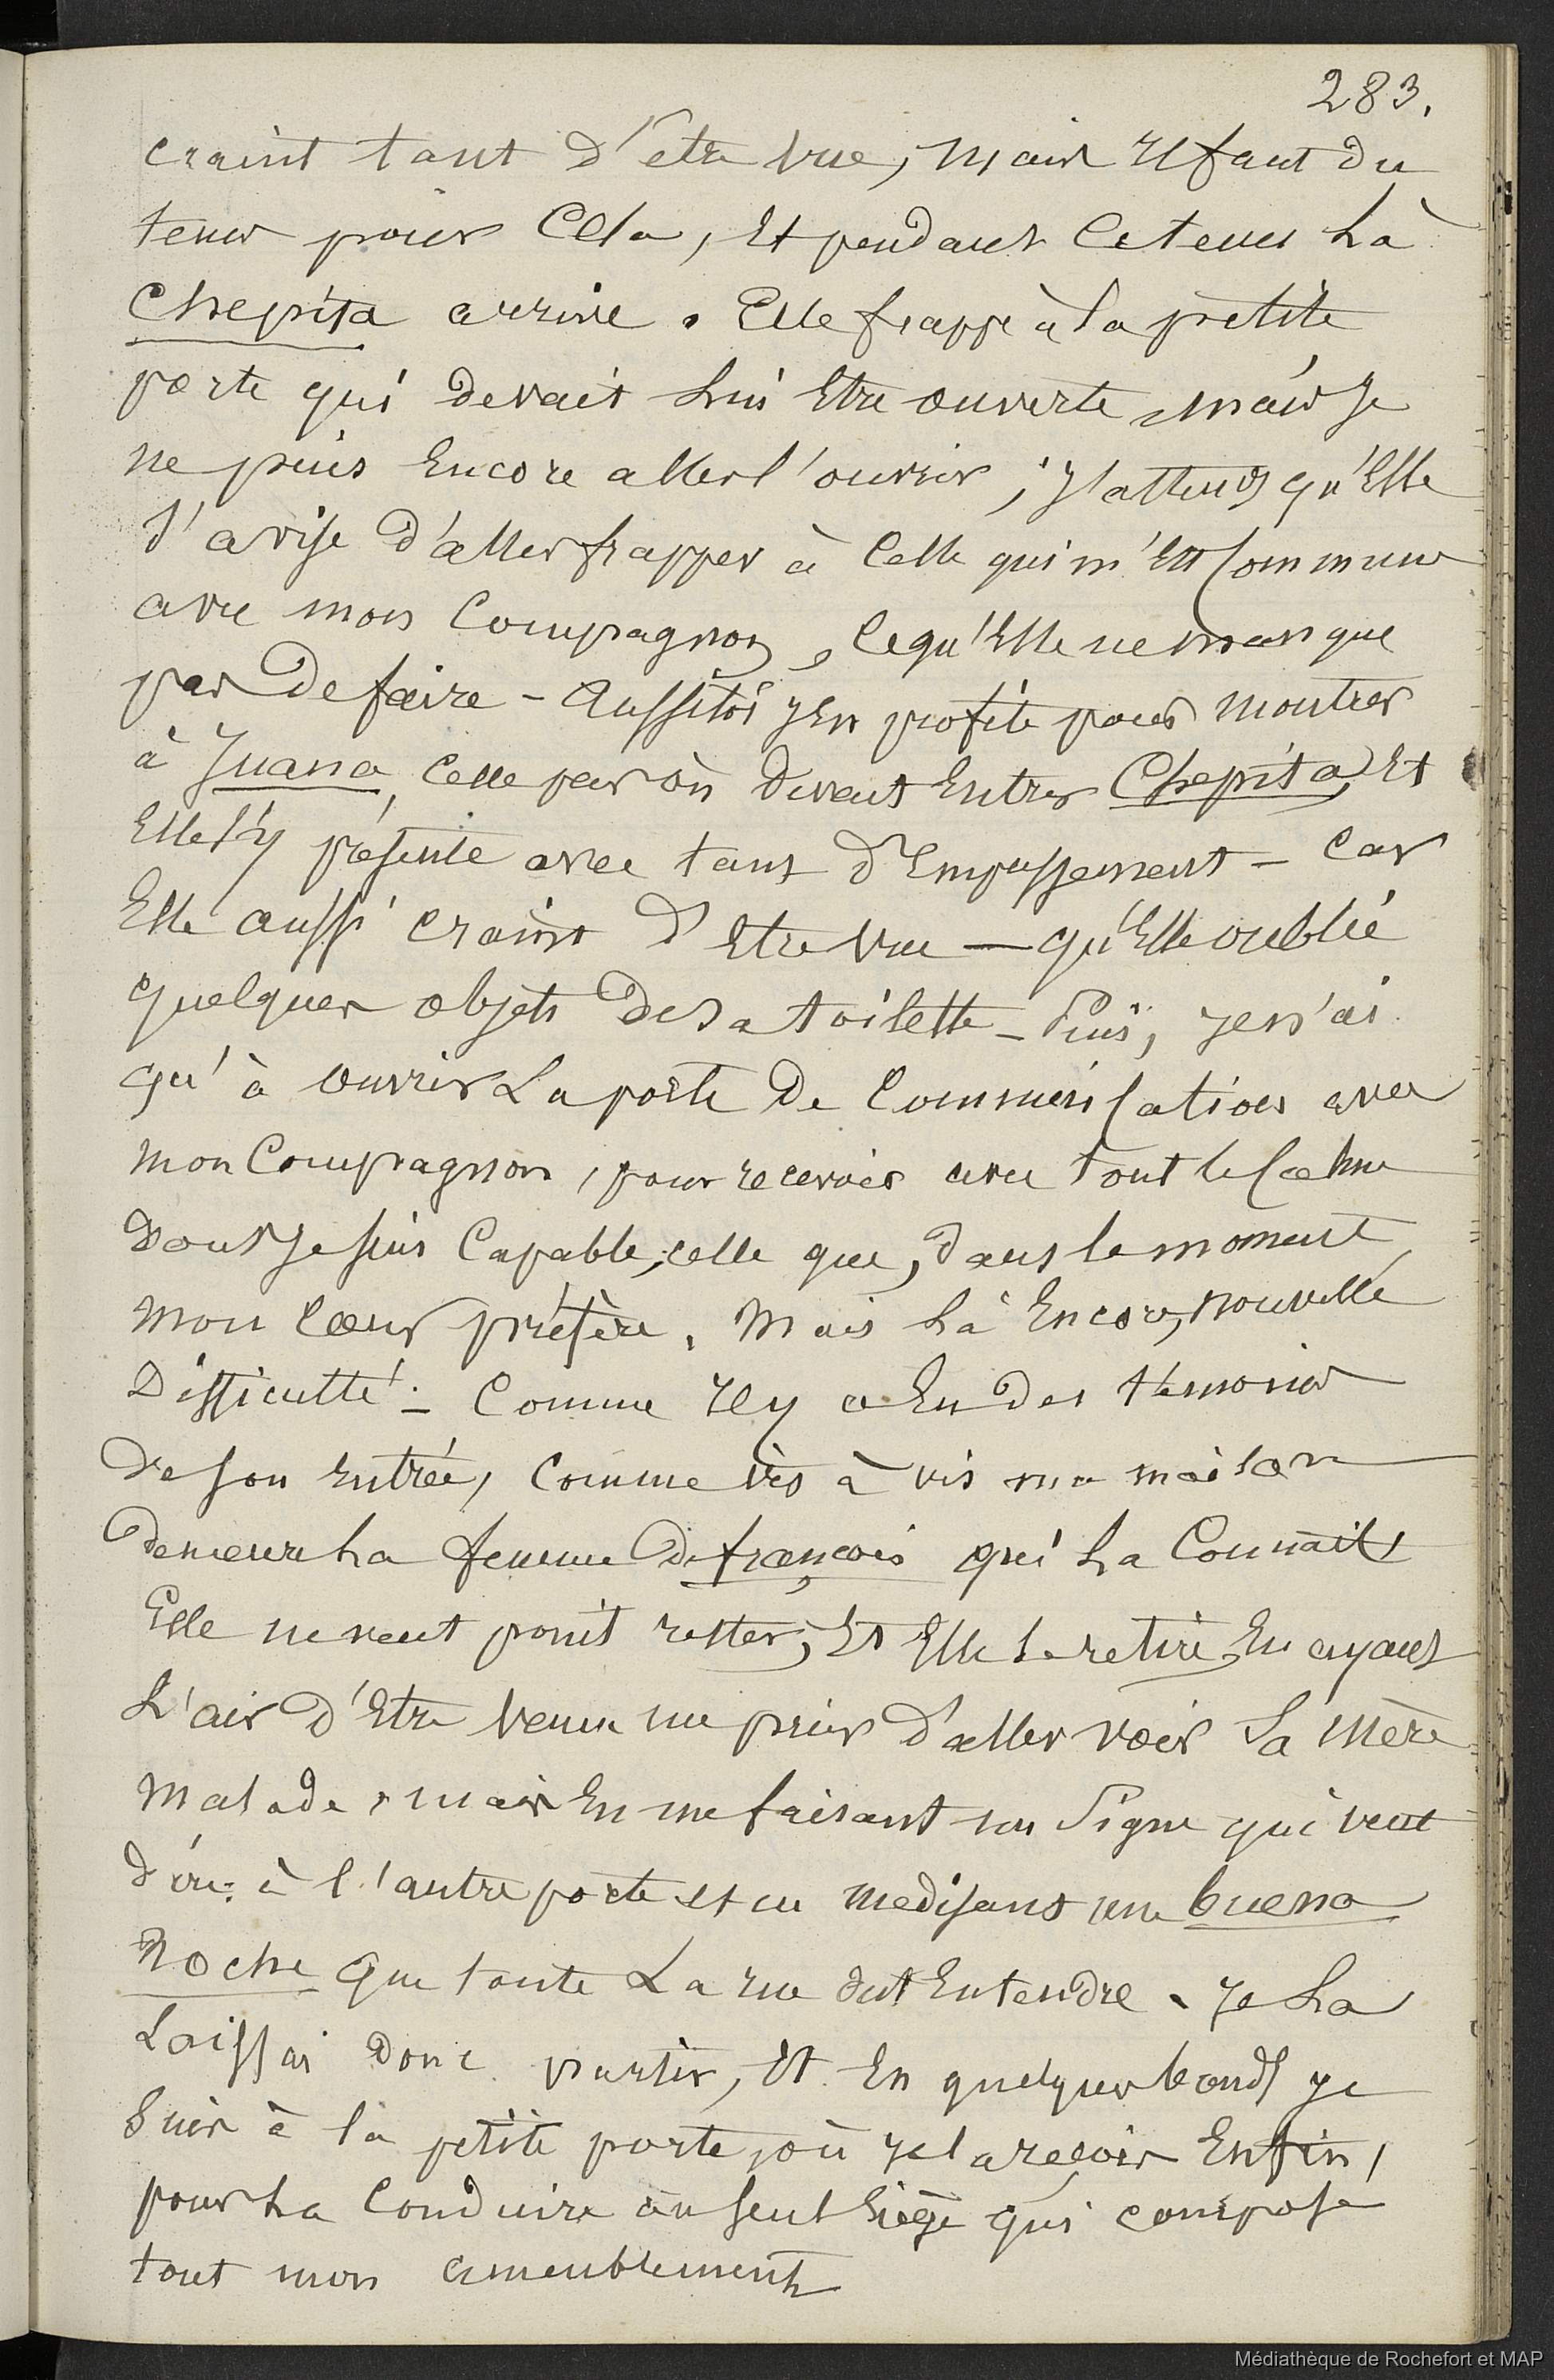 283.
craint tant d'être vue, mais Il faut du
tems pour Cela, Et pendant Ce tems Là
Chepita arrive. Elle frappe à la petite
porte qui devait Lui Etre ouverte, mais Je
ne puis Encore aller l'ouvrir, J'attends qu'Elle
s'avise d'aller frapper à Celle qui m'Est Commune
avec mon Compagnon, Ce qu'Elle ne manque
pas De faire - Aussitôt J'En profite pour montrer
à Juana, Celle par où devait Entrer Chepita, Et
Elle s'y présente avec tant d'Empressement - Car
Elle aussi craint d'Etre Vue — qu'Elle oublie
quelques objets De sa toilette - Puis, Je n'ai
qu'à ouvrir La porte De Communication avec
mon Compagnon, pour recevoir avec tout le Calme
Dont Je suis Capable, celle que, dans le moment,
mon Cœur préfère. Mais Là Encore, nouvelle
Difficulté - Comme Il y a Eu des témoins
de son Entrée, Comme vis à vis ma maison
demeure La femme de françois qui La Connait,
Elle ne veut point rester, Et Elle se retire, En ayant
L'air d'Etre Venue me prier d'aller voir Sa mère
malade, mais En me faisant un Signe qui veut
dire: à l'autre porte et en me disant une buena
Noche que toute La rue dut Entendre. Je La
Laissai donc partir, Et En quelques bonds Je
Suis à la petite porte, où Je la reçois Enfin,
pour La Conduire au seul Siège qui compose
tout mon ameublement
Médiathèque de Rochefort et MAP